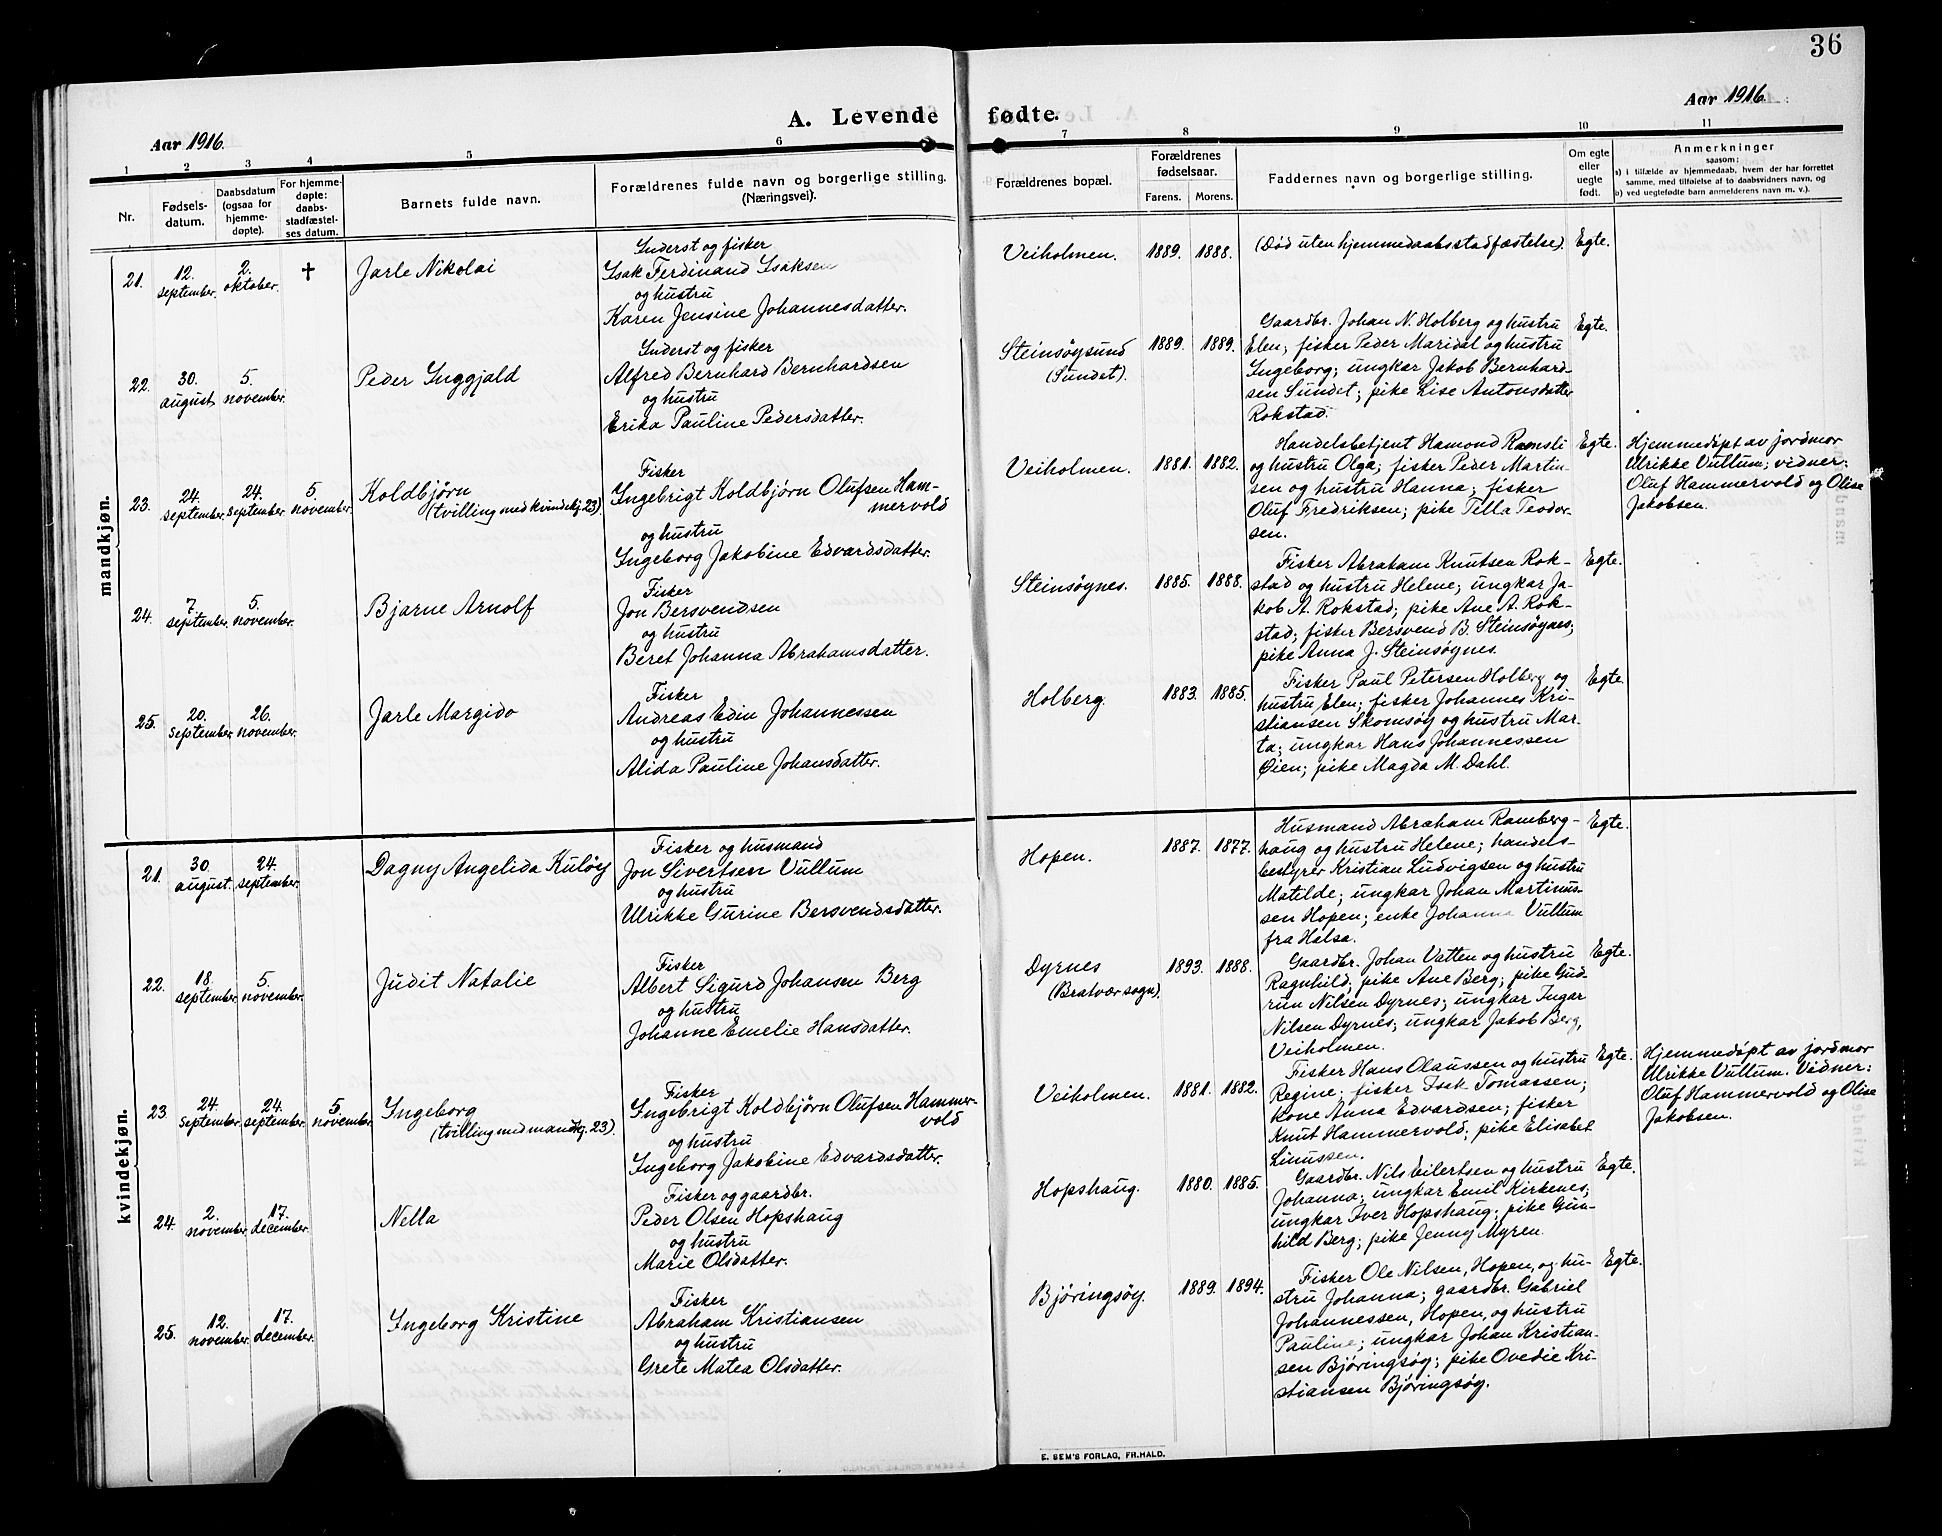 36
A. Levende fødte.
Aar 1916.
Aar 1916.
1 2 3 4 5 6 7 8 9 10 11
Nr.
Fødsels-
datum.
Daabsdatum
(ogsaa for
hjemme-
døpte).
For hjemme-
døpte:
daabs-
stadfæstel-
ses datum.
Barnets fulde navn.
Forældrenes fulde navn og borgerlige stilling.
(Næringsvei).
Forældrenes bopæl.
Forældrenes
fødselsaar.
Farens. Morens.
Faddernes navn og borgerlige stilling.
Om egte
eller
uegte
født.
Anmerkninger
saasom:
a) i tilfælde av hjemmedaab, hvem der har forrettet
samme, med tilføielse af to daabsvidners navn, og
b) ved uegtefødte barn anmelderens navn m. v.).
mandkjøn.
21.
12.
september.
2.
oktober.
†
Jarle Nikolai
Inderst og fisker
Isak Ferdinand Isaksen
og hustru
Karen Jensine Johannesdatter.
Veiholmen.
1889. 1888.
(Død uten hjemmedaabsstadfæstelse).
Egte.
22.
30.
august
5.
november.
Peder Inggjald
Inderst og fisker
Alfred Bernhard Bernhardsen
og hustru
Erika Pauline Pedersdatter.
Steinsøysund
(Sundet).
1889. 1889.
Gaardbr. Johan N. Holberg og hustru
Elen; fisker Peder Maridal og hustru
Ingeborg; ungkar Jakob Bernhard-
sen Sundet; pike Lise Antonsdatter
Rokstad.
Egte.
23.
24.
september.
24.
september.
5.
november.
Koldbjørn
(tvilling med kvindekj. 23).
Fisker
Ingebrigt Koldbjørn Olufsen Ham-
mervold
og hustru
Ingeborg Jakobine Edvardsdatter.
Veiholmen.
1881. 1882.
Handelsbetjent Hamond Ramsli
og hustru Olga; fisker Peder Martin-
sen og hustru Hanna; fisker
Oluf Fredriksen; pike Tella Teodor-
sen.
Egte.
Hjemmedøpt av jordmor
Ulrikke Vullum; vidner:
Oluf Hammervold og Olise
Jakobsen.
24.
7.
september.
5.
november.
Bjarne Arnolf
Fisker
Jon Bersvendsen
og hustru
Beret Johanna Abrahamsdatter.
Steinsøynes.
1885. 1888.
Fisker Abraham Knutsen Rok-
stad og hustru Helene; ungkar Ja-
kob A. Rokstad; pike Ane A. Rok-
stad; fisker Bersvend B. Steinsøynes;
pike Anna J. Steinsøynes.
Egte.
25.
20.
september.
26.
november.
Jarle Margido
Fisker
Andreas Edin Johannessen
og hustru
Alida Pauline Johansdatter.
Holberg.
1883. 1885.
Fisker Paul Petersen Holberg og
hustru Elen; fisker Johannes Kri-
stiansen Skomsøy og hustru Mar-
ta; ungkar Hans Johannessen
Øien; pike Magda M. Dahl.
Egte.
kvindekjøn.
21.
30.
august.
24.
september.
Dagny Angelida Kuløy
Fisker og husmand
Jon Sivertsen Vullum
og hustru
Ulrikke Gurine Bersvendsdatter.
Hopen.
1887. 1877.
Husmand Abraham Ramberg-
haug og hustru Helene; handels-
bestyrer Kristian Ludvigsen og hustru
Matilde; ungkar Johan Martinus-
sen Hopen; enke Johanna Vullum
fra Halsa.
Egte.
22.
18.
september.
5.
november.
Judit Natalie
Fisker
Albert Sigurd Johansen Berg
og hustru
Johanne Emelie Hansdatter.
Dyrnes
(Bratvær sogn).
1893. 1888.
Gaardbr. Johan Vatten og hustru
Ragnhild; pike Ane Berg; pike Gud-
run Nilsen Dyrnes; ungkar Ingar
Nilsen Dyrnes; ungkar Jakob Berg,
Veiholmen.
Egte.
23
24.
september.
24.
september.
5.
november.
Ingeborg
(tvilling med mandkj. 23).
Fisker
Ingebrigt Koldbjørn Olufsen Hammer-
vold
og hustru
Ingeborg Jakobine Edvardsdatter.
Veiholmen.
1881. 1882.
Fisker Hans Olaussen og hustru
Regine; fisker Isak Tomassen;
kone Anna Edvardsen; fisker
Knut Hammervold; pike Elisabet
Linussen.
Egte.
Hjemmedøpt av jordmor
Ulrikke Vullum. Vidner:
Oluf Hammervold og Olise
Jakobsen.
24.
2.
november.
17.
december.
Nella
Fisker og gaardbr.
Peder Olsen Hopshaug
og hustru
Marie Olsdatter.
Hopshaug.
1880. 1885.
Gaardbr. Nils Eilertsen og hustru
Johanna; ungkar Emil Kirkenes;
ungkar Iver Hopshaug; pike Gun-
hild Berg; pike Jenny Myren.
Egte.
25.
12.
november.
17.
december.
Ingeborg Kristine
Fisker
Abraham Kristiansen
og hustru
Grete Matea Olsdatter.
Bjøringsøy.
1889. 1894.
Fisker Ole Nilsen, Hopen, og hu-
stru Johanna; gaardbr. Gabriel
Johannessen, Hopen, og hustru
Pauline; ungkar Johan Kristian-
sen Bjøringsøy; pike Ovedie Kri-
stiansen Bjøringsøy.
Egte.
E. SEM'S FORLAG, FR.HALD.